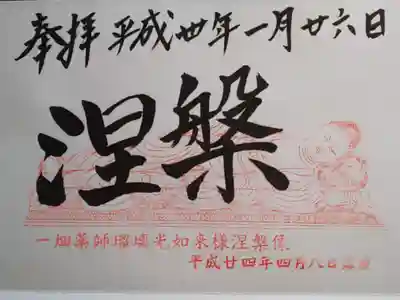 奉拝 平成丗年一月廿六日
涅槃
一畑薬師瑠璃光如来様涅槃像
平成廿四年四月八日